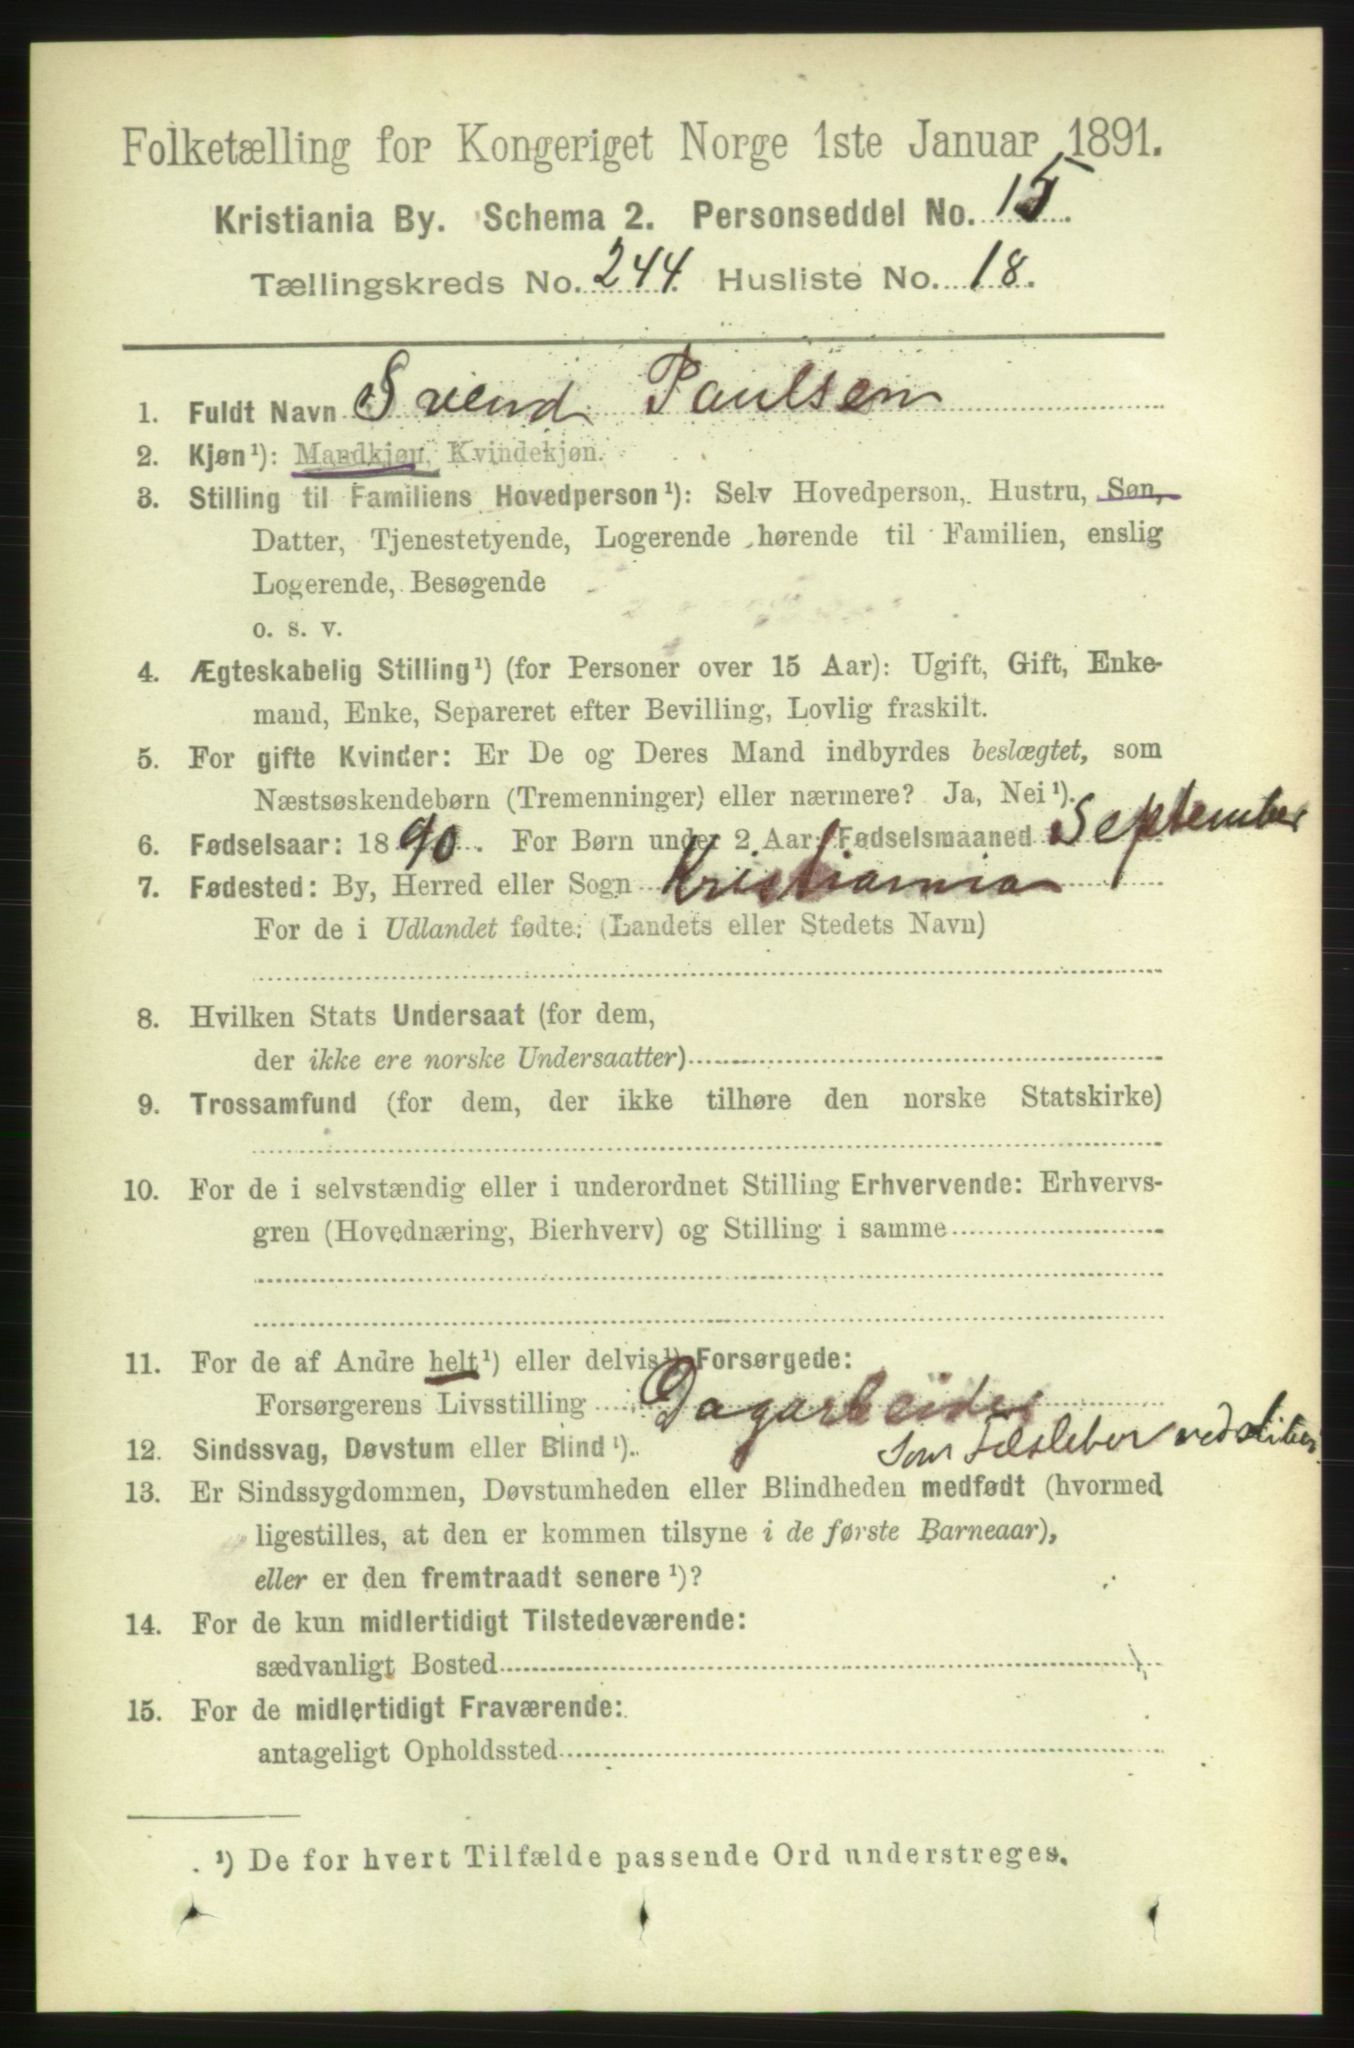 Folketælling for Kongeriget Norge 1ste Januar 1891.
Kristiania By. Schema 2. Personseddel No. 15.
Tællingskreds No. 244. Husliste No. 18.
1. Fuldt Navn Svend Paulsen
2. Kjøn¹): Mandkjøn, Kvindekjøn.
3. Stilling til Familiens Hovedperson¹): Selv Hovedperson, Hustru, Søn,
Datter, Tjenestetyende, Logerende hørende til Familien, enslig
Logerende, Besøgende
o. s. v.
4. Ægteskabelig Stilling¹) (for Personer over 15 Aar): Ugift, Gift, Enke-
mand, Enke, Separeret efter Bevilling, Lovlig fraskilt.
5. For gifte Kvinder: Er De og Deres Mand indbyrdes beslægtet, som
Næstsøskendebørn (Tremenninger) eller nærmere? Ja, Nei¹).
6. Fødselsaar: 1890. For Børn under 2 Aar: Fødselsmaaned September
7. Fødested: By, Herred eller Sogn Kristiannia
For de i Udlandet fødte: (Landets eller Stedets Navn)
8. Hvilken Stats Undersaat (for dem,
der ikke ere norske Undersaatter)
9. Trossamfund (for dem, der ikke tilhøre den norske Statskirke)
10. For de i selvstændig eller i underordnet Stilling Erhvervende: Erhvervs-
gren (Hovednæring, Bierhverv) og Stilling i samme
11. For de af Andre helt¹) eller delvis¹) Forsørgede:
Forsørgerens Livsstilling Dagarbeider
som ved
12. Sindssvag, Døvstum eller Blind¹).
13. Er Sindssygdommen, Døvstumheden eller Blindheden medfødt (hvormed
ligestilles, at den er kommen tilsyne i de første Barneaar),
eller er den fremtraadt senere¹)?
14. For de kun midlertidigt Tilstedeværende:
sædvanligt Bosted
15. For de midlertidigt Fraværende:
antageligt Opholdssted
¹) De for hvert Tilfælde passende Ord understreges.